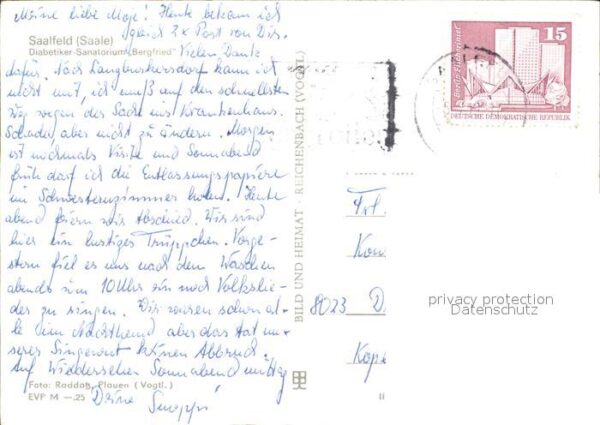 Meine liebe Moje! Heute bekam ich
gleich 2x Post von Dir.
Saalfeld (Saale)
Diabetiker-Sanatorium „Bergfried"
Vielen Dank
dafür. Nach Langburkersdorf kann ich
nicht mit, ich muß auf den schnellsten
Weg wegen der Sache ins Krankenhaus.
Schade, aber nicht zu ändern. Morgen
ist nochmals Visite und Sonnabend
früh darf ich die Entlassungspapiere
im Schwesternzimmer holen. Heute
abend feiern wir Abschied. Wir sind
hier ein lustiges Trüppchen. Vorge-
stern fiel es uns nach dem Waschen
abends um 10 Uhr ein noch Volkslie-
der zu singen. Wir waren schon al-
le im Nachthemd aber das tat un-
serer Singewut keinen Abbruch.
Auf Wiedersehen Sonnabend mittag
Foto: Raddatz, Plauen (Vogtl.)
EVP M —.25
Deine
BILD UND HEIMAT · REICHENBACH (VOGTL)
15
Berlin-Fischerinsel
DEUTSCHE DEMOKRATISCHE REPUBLIK
Frl.
8023 D
privacy protection
Datenschutz
II